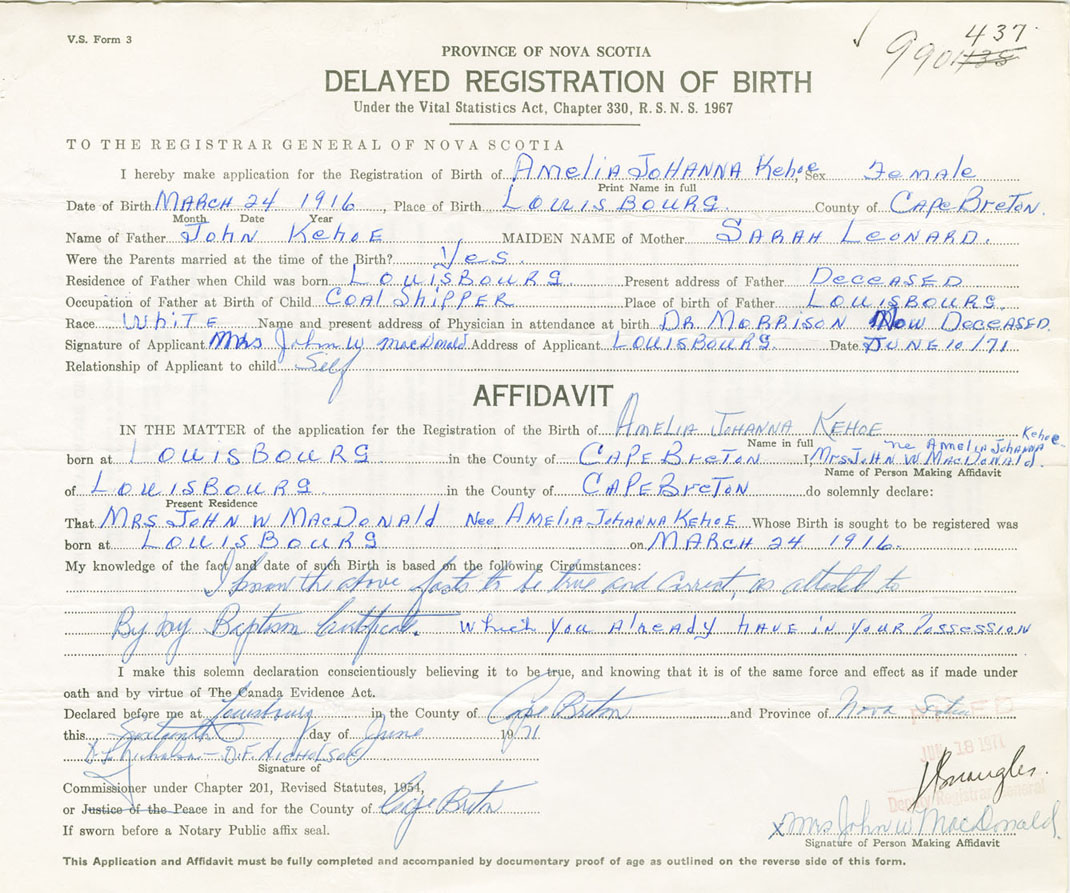 V.S. Form 3
437
990 435
PROVINCE OF NOVA SCOTIA
DELAYED REGISTRATION OF BIRTH
Under the Vital Statistics Act, Chapter 330, R.S.N.S. 1967
TO THE REGISTRAR GENERAL OF NOVA SCOTIA
I hereby make application for the Registration of Birth of AMELIA JOHANNA KehoE, Sex Female
Print Name in full
Date of Birth MARCH 24 1916, Place of Birth LOUISBOURG. County of CAPE BRETON.
Month Date Year
Name of Father JOHN KEHOE, MAIDEN NAME of Mother SARAH LEONARD.
Were the Parents married at the time of the Birth? Yes.
Residence of Father when Child was born LOUISBOURG Present address of Father DECEASED
Occupation of Father at Birth of Child COAL SHIPPER Place of birth of Father LOUISBOURG.
Race WHITE Name and present address of Physician in attendance at birth DR. MORRISON NOW DECEASED.
Signature of Applicant Mrs John W MacDonald Address of Applicant LOUISBOURG. Date JUNE 10/71
Relationship of Applicant to child Self
AFFIDAVIT
IN THE MATTER of the application for the Registration of the Birth of AMELIA JOHANNA KEHOE
Name in full nee Amelia Johanna Kehoe
born at LOUISBOURG in the County of CAPE BRETON I, MRS JOHN W MACDONALD.
Name of Person Making Affidavit
of LOUISBOURG in the County of CAPE BRETON do solemnly declare:
Present Residence
That MRS JOHN W MACDONALD Nee AMELIA JOHANNA KEHOE Whose Birth is sought to be registered was
born at LOUISBOURG on MARCH 24 1916.
My knowledge of the fact and date of such Birth is based on the following Circumstances:
I know the above facts to be true and correct, as attested to
By my Baptism Certificate. which you already have in your possession
I make this solemn declaration conscientiously believing it to be true, and knowing that it is of the same force and effect as if made under
oath and by virtue of The Canada Evidence Act.
Declared before me at Louisbourg in the County of Cape Breton and Province of Nova Scotia
this day of June 1971
D.F. Nicholson - D.F. NICHOLSON
JUN 18 1971
Signature of
Commissioner under Chapter 201, Revised Statutes, 1954,
Deputy Registrar General
or Justice of the Peace in and for the County of Cape Breton
Mrs John W MacDonald.
If sworn before a Notary Public affix seal.
Signature of Person Making Affidavit
This Application and Affidavit must be fully completed and accompanied by documentary proof of age as outlined on the reverse side of this form.